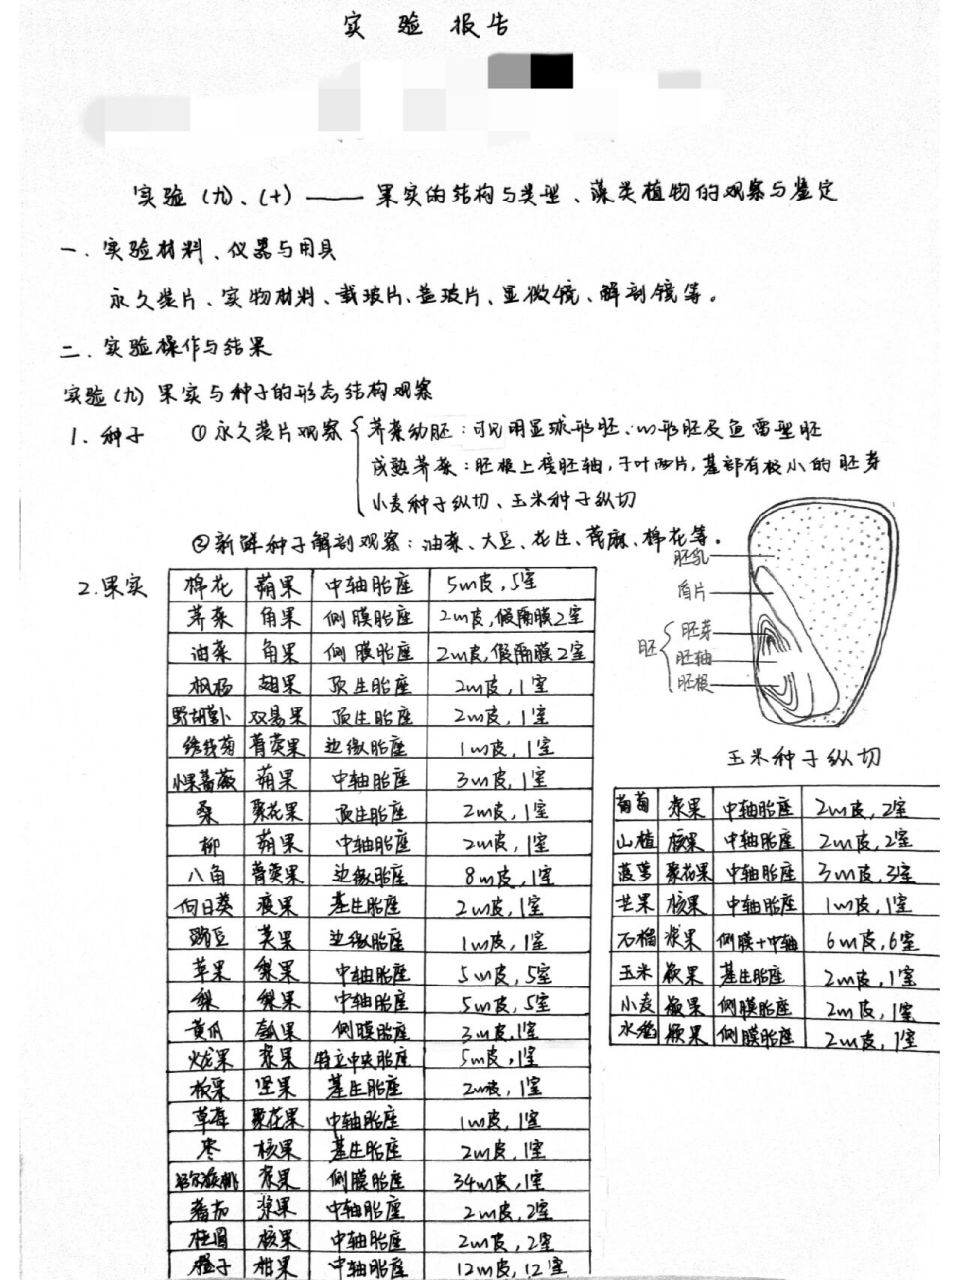 实验报告
实验(九)、(十)——果实的结构与类型、藻类植物的观察与鉴定
一.实验材料、仪器与用具
永久装片、实物材料、载玻片、盖玻片、显微镜、解剖镜等。
二.实验操作与结果
实验(九)果实与种子的形态结构观察
1.种子 ①永久装片观察 荠菜幼胚:可见明显球形胚、心形胚及鱼雷型胚
成熟荠菜:胚根上接胚轴,子叶两片,基部有极小的胚芽
小麦种子纵切、玉米种子纵切
②新鲜种子解剖观察:油菜、大豆、花生、蓖麻、棉花等。
2.果实
棉花 蒴果 中轴胎座 5心皮,5室
荠菜 角果 侧膜胎座 2心皮,假隔膜2室
油菜 角果 侧膜胎座 2心皮,假隔膜2室
枫杨 翅果 顶生胎座 2心皮,1室
野胡萝卜 双悬果 顶生胎座 2心皮,1室
绣线菊 蓇葖果 边缘胎座 1心皮,1室
小果蔷薇 蒴果 中轴胎座 3心皮,1室
桑 聚花果 顶生胎座 2心皮,1室
柳 蒴果 中轴胎座 2心皮,1室
八角 蓇葖果 边缘胎座 8心皮,1室
向日葵 瘦果 基生胎座 2心皮,1室
豌豆 荚果 边缘胎座 1心皮,1室
苹果 梨果 中轴胎座 5心皮,5室
梨 梨果 中轴胎座 5心皮,5室
黄瓜 瓠果 侧膜胎座 3心皮,1室
火龙果 浆果 特立中央胎座 5心皮,1室
板栗 坚果 基生胎座 2心皮,1室
草莓 聚花果 中轴胎座 1心皮,1室
枣 核果 基生胎座 2心皮,1室
浆果 侧膜胎座 34心皮,1室
蕃茄 浆果 中轴胎座 2心皮,2室
桂圆 核果 中轴胎座 2心皮,2室
橙子 柑果 中轴胎座 12心皮,12室
胚乳
盾片
胚
胚芽
胚轴
胚根
玉米种子纵切
葡萄 浆果 中轴胎座 2心皮,2室
山楂 核果 中轴胎座 2心皮,2室
菠萝 聚花果 中轴胎座 3心皮,3室
芒果 核果 中轴胎座 1心皮,1室
石榴 浆果 侧膜+中轴 6心皮,6室
玉米 颖果 基生胎座 2心皮,1室
小麦 颖果 侧膜胎座 2心皮,1室
水稻 颖果 侧膜胎座 2心皮,1室